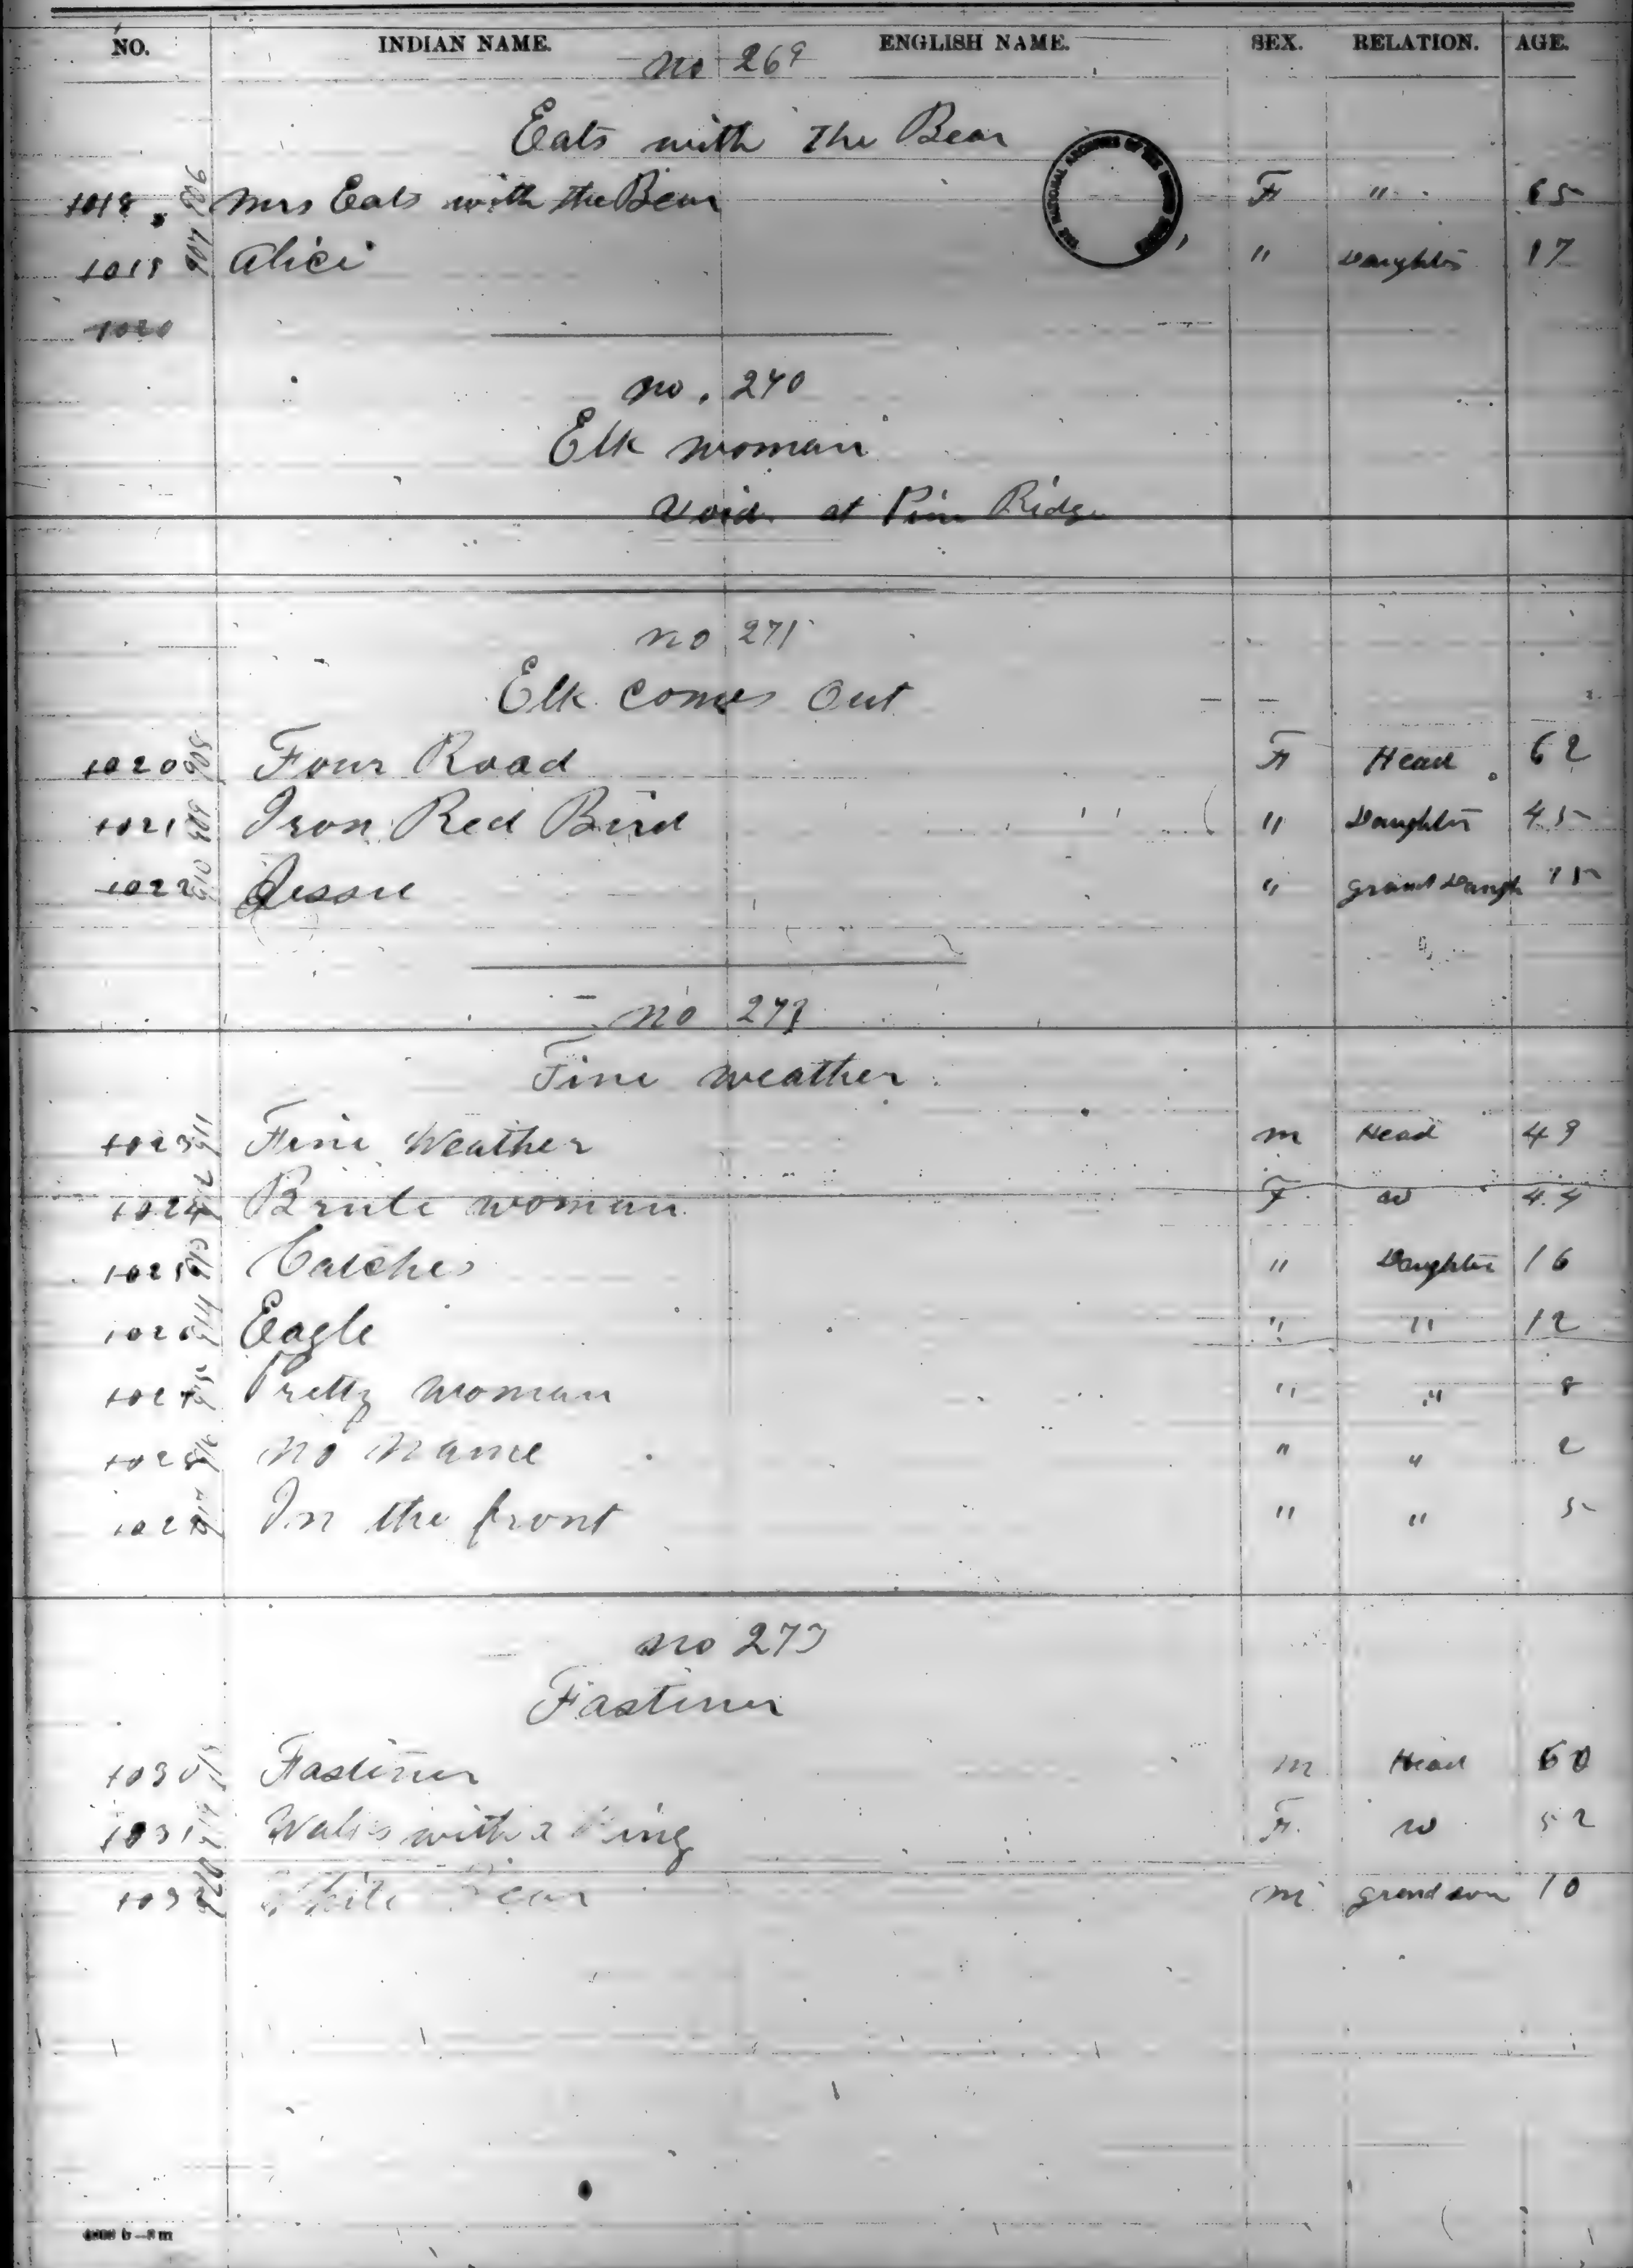 NO. INDIAN NAME. ENGLISH NAME. SEX. RELATION. AGE.
no 269
Eats with The Bear
1018 906 Mrs Eats with the Bear F " 65
1019 907 Alice " Daughter 17
1020
no. 270
Elk woman
Void at Pine Ridge
no 271
Elk Comes Out
1020 908 Four Road F Head 62
1021 909 Iron Red Bird " Daughter 45
1022 910 Jessie " Grand Daugh 15
no 272
Fine weather
1023 911 Fine Weather m Head 49
1024 912 Brule woman F w 44
1025 913 Catches " Daughter 16
1026 914 Eagle " " 12
1027 915 Pretty woman " " 8
1028 916 No Name " " 2
1029 917 In the front " " 5
no 273
Fastener
1030 918 Fastener m Head 60
1031 919 with a F. w 52
1032 920 White m grand son 10
THE NATIONAL ARCHIVES OF THE UNITED STATES